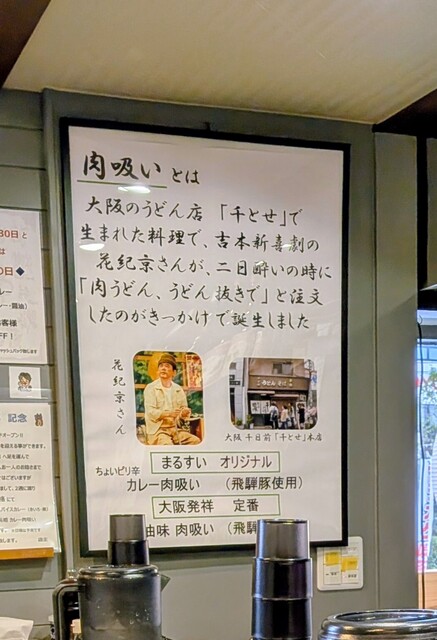 肉吸いとは
大阪のうどん店 「千とせ」で
生まれた料理で、吉本新喜劇の
花紀京さんが、二日酔いの時に
「肉うどん、うどん抜きで」と注文
したのがきっかけで誕生しました
花紀京さん
うどん そば
大阪 千日前「千とせ」本店
ちょいピリ辛
まるすい オリジナル
カレー肉吸い （飛騨豚使用）
大阪発祥 定番
油味 肉吸い （飛騨
30日 と
は
0日◆
レー
お客様
FF！
記念